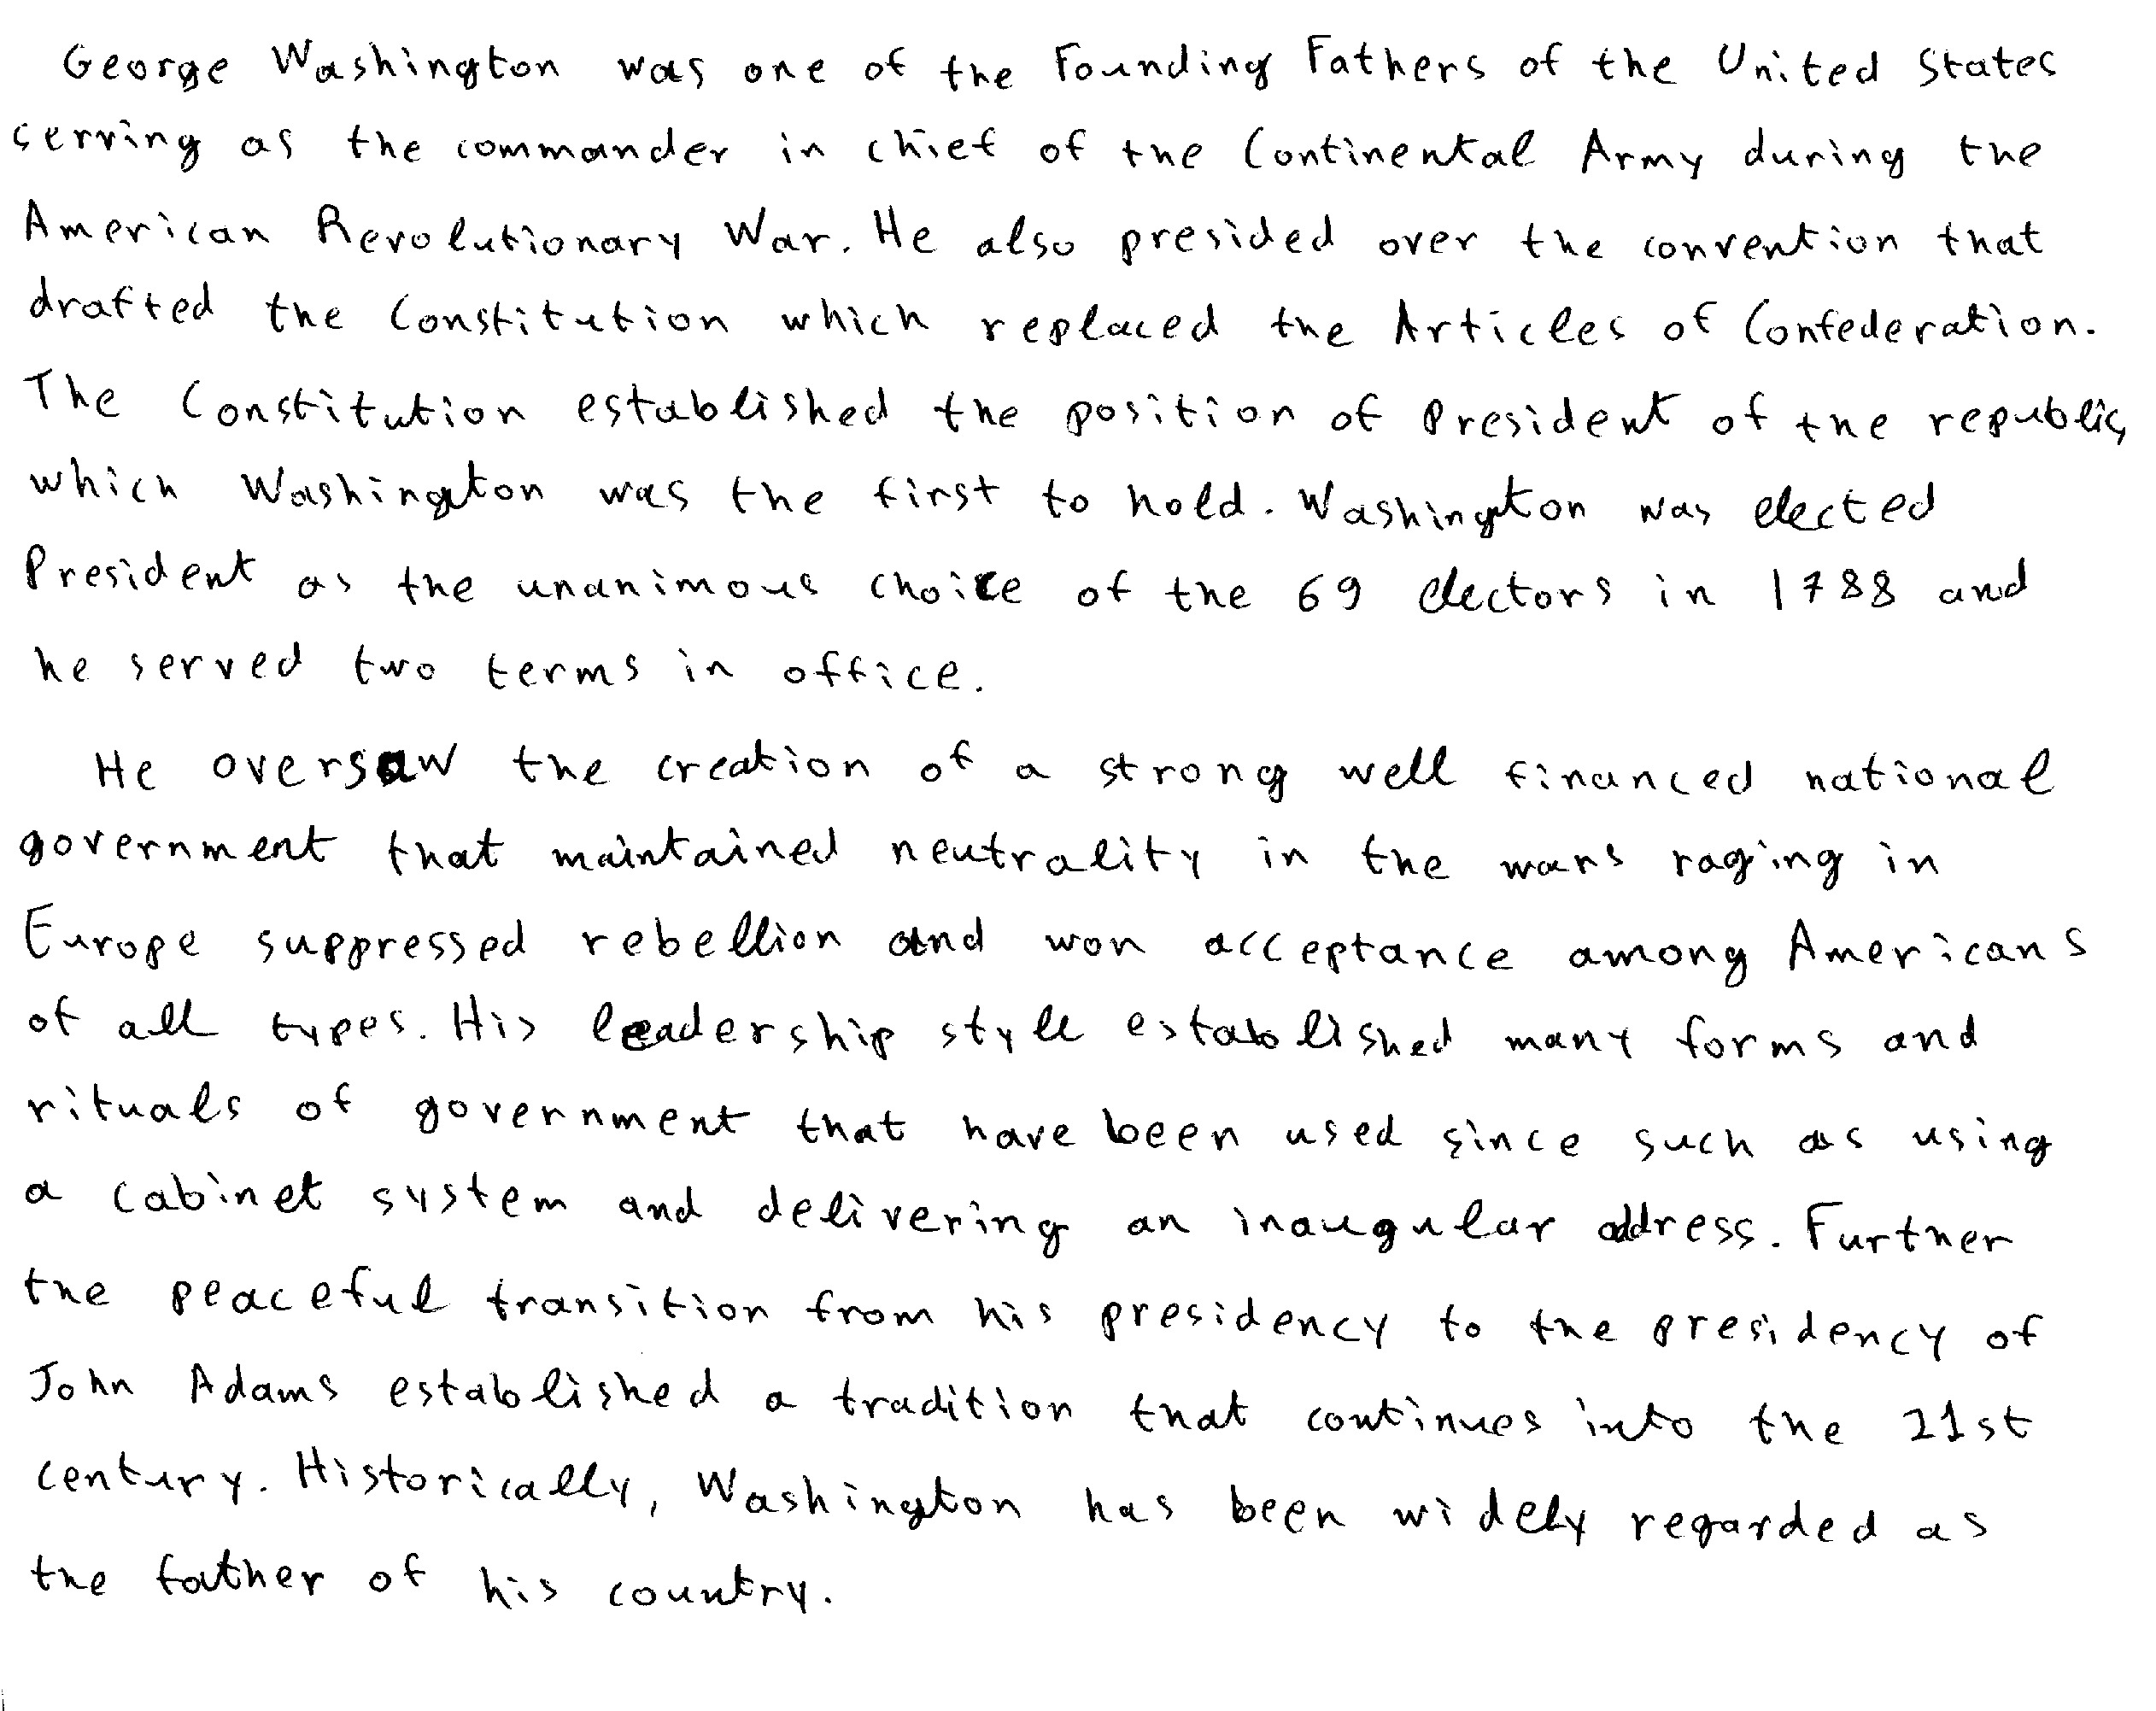 George Washington was one of the Founding Fathers of the United States
serving as the commander in chief of the Continental Army during the
American Revolutionary War. He also presided over the convention that
drafted the Constitution which replaced the Articles of Confederation.
The Constitution established the position of President of the republic,
which Washington was the first to hold. Washington was elected
President as the unanimous choice of the 69 electors in 1788 and
he served two terms in office.
He oversaw the creation of a strong well financed national
government that maintained neutrality in the wars raging in
Europe suppressed rebellion and won acceptance among Americans
of all types. His leadership style established many forms and
rituals of government that have been used since such as using
a cabinet system and delivering an inaugular address. Further
the peaceful transition from his presidency to the presidency of
John Adams established a tradition that continues into the 21st
century. Historically, Washington has been widely regarded as
the father of his country.